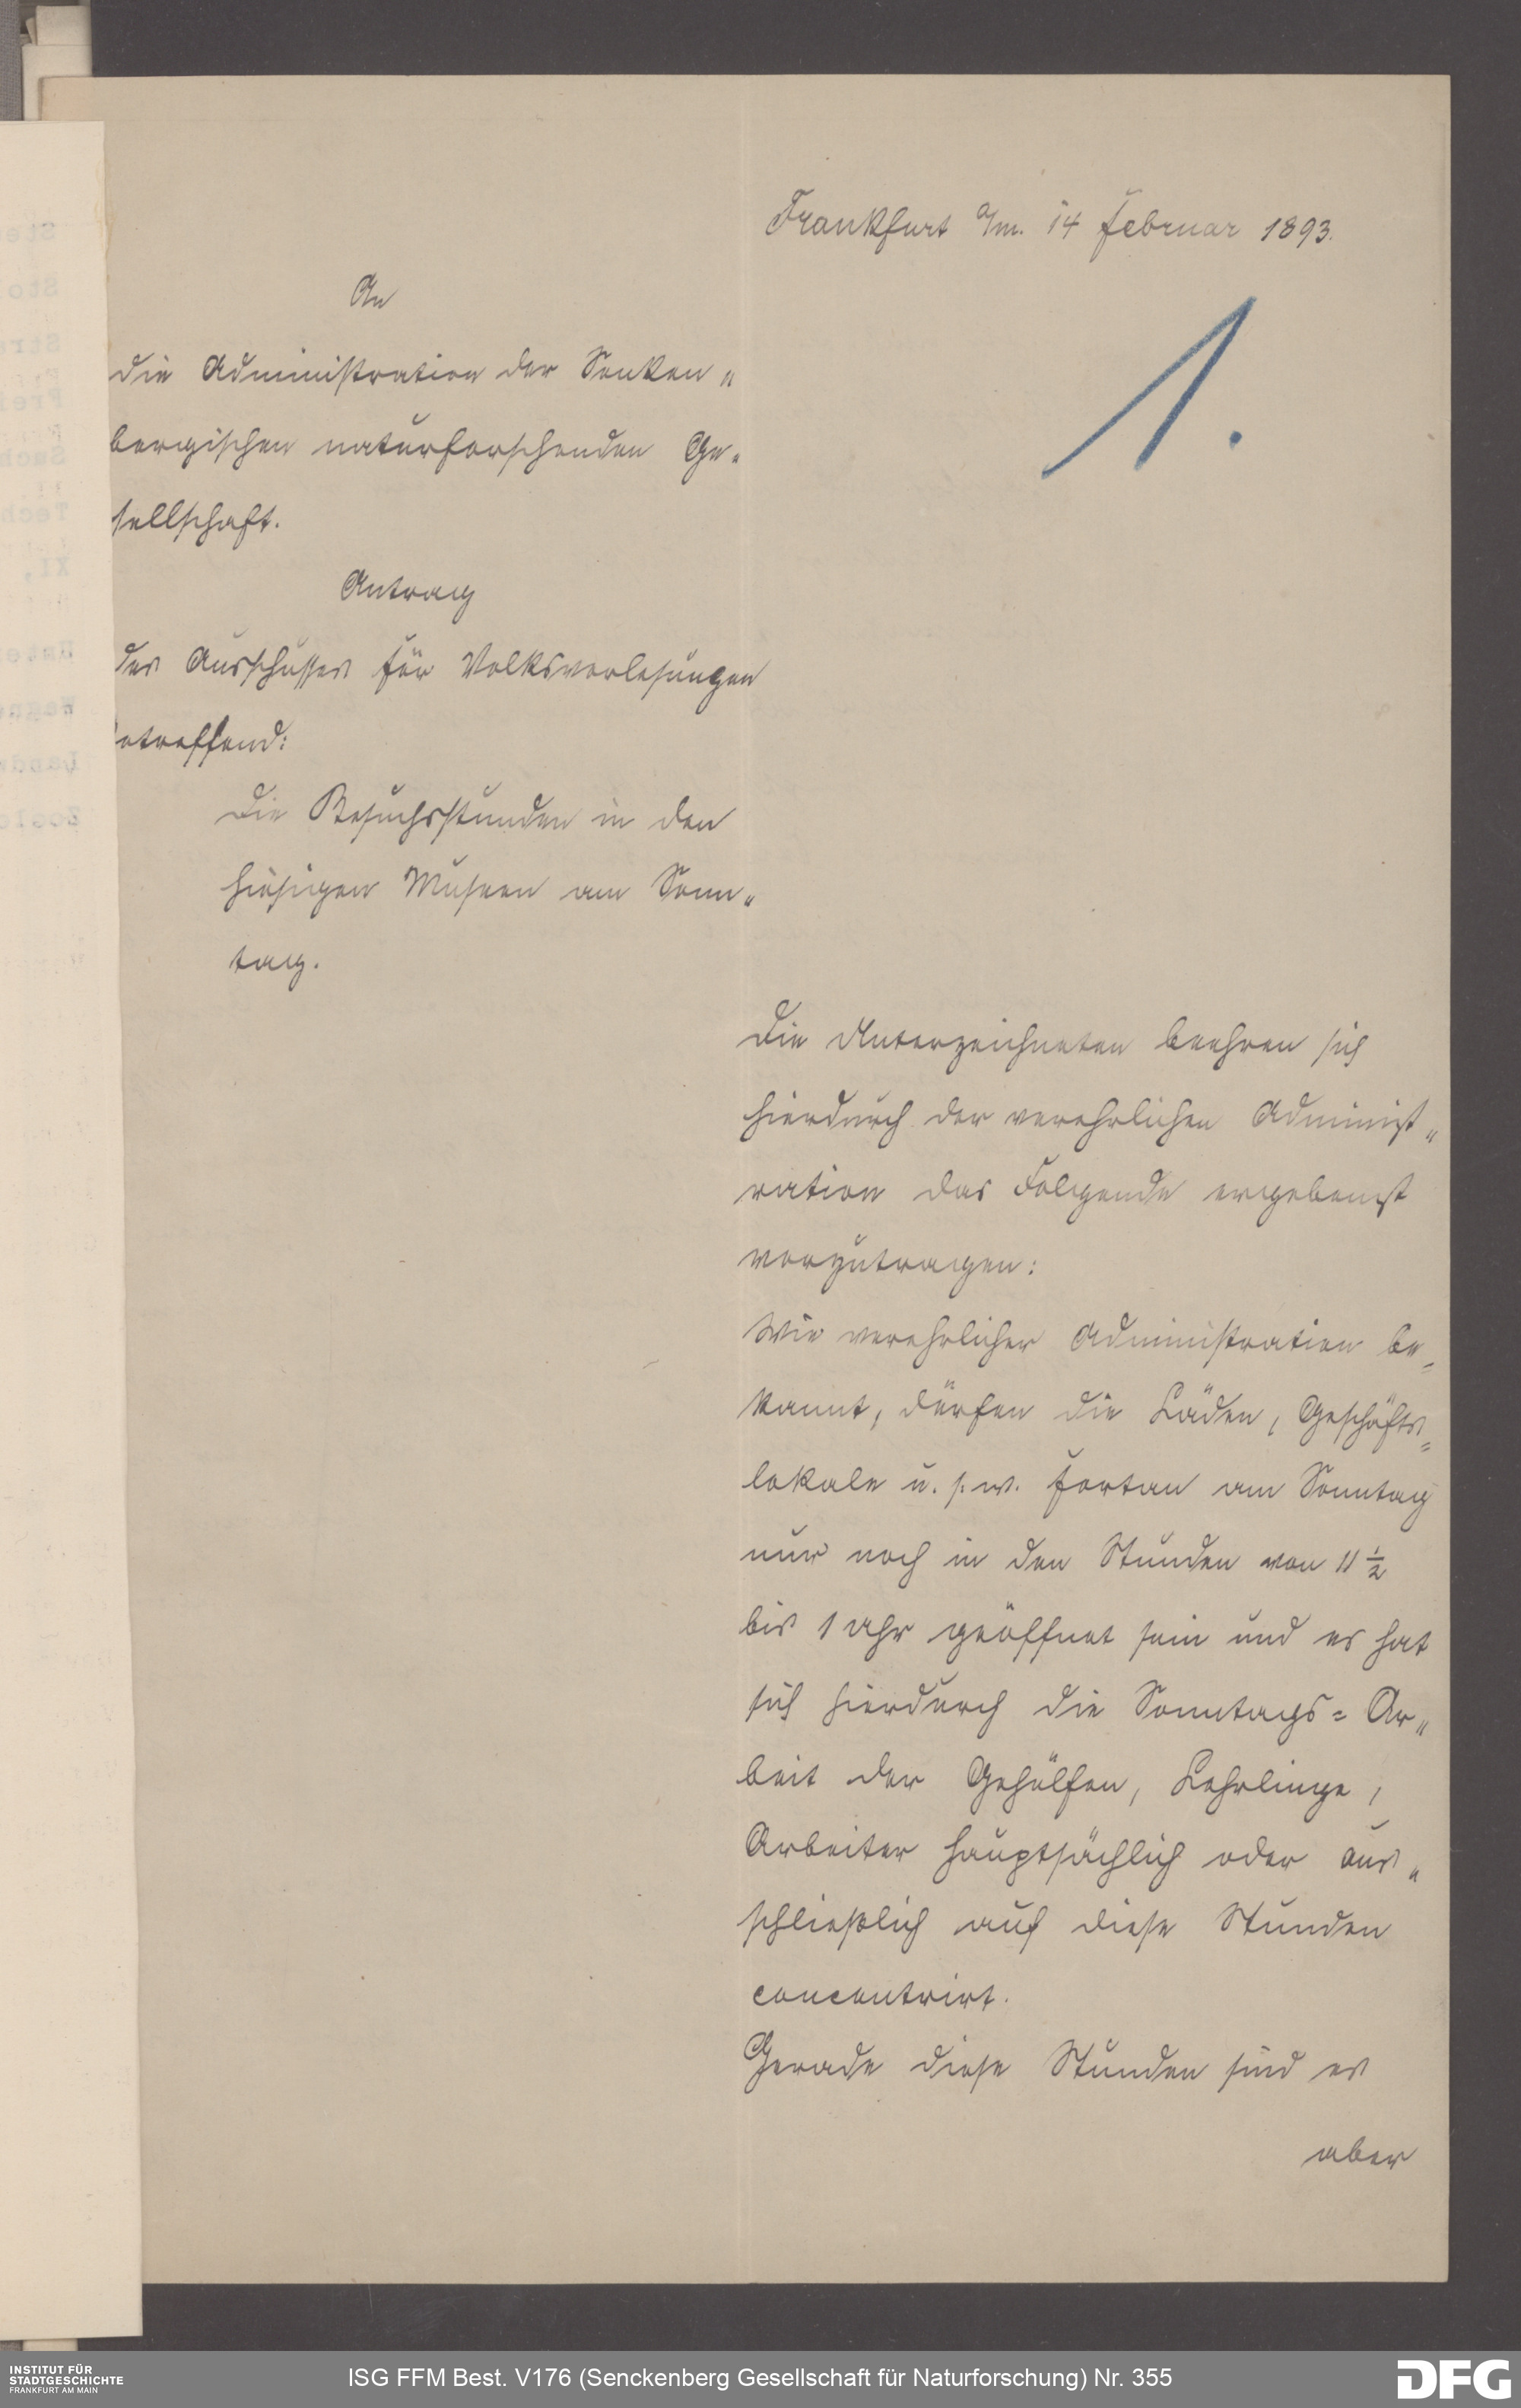 Frankfurt a/m. 14 Februar 1893.
1.
An
die Administration der Senken„
bergischen naturforschenden Ge„
sellschaft.
Antrag
des Ausschusses für Volksvorlesungen
etreffend:
Die Besuchsstunden in den
hiesigen Museen am Sonn„
tag.
Die Unterzeichneten beehren sich
hierdurch der verehrlichen Administ„
ration das Folgende ergebenst
vorzutragen:
Wie verehrlicher Administration be=
kannt, dürfen die Läden, Geschäfts=
lokale u. s. w. fortan am Sonntag
nur noch in den Stunden von 11 1/2
bis 1 Uhr geöffnet sein und es hat
sich hierdurch die Sonntags=Ar„
beit der Gehülfen, Lehrlinge,
Arbeiter hauptsächlich oder aus„
schließlich auf diese Stunden
concentrirt.
Gerade diese Stunden sind es
aber
INSTITUT FÜR
STADTGESCHICHTE
FRANKFURT AM MAIN
ISG FFM Best. V176 (Senckenberg Gesellschaft für Naturforschung) Nr. 355
DFG